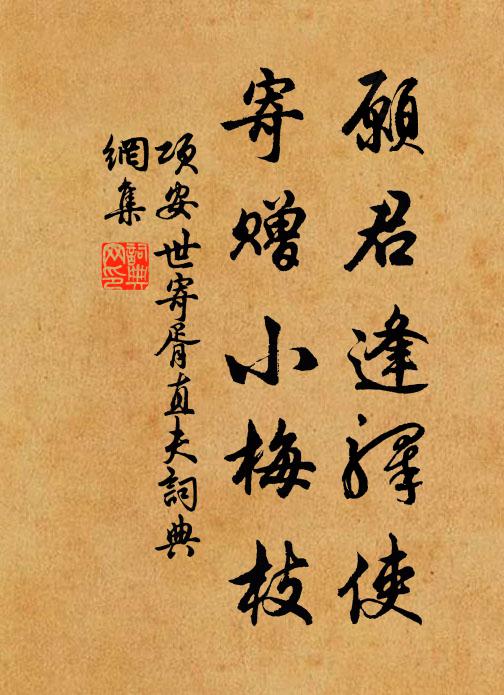 願君逢驛使
寄贈小梅枝
項安世寄胥直夫詞典
網集
詞典網印